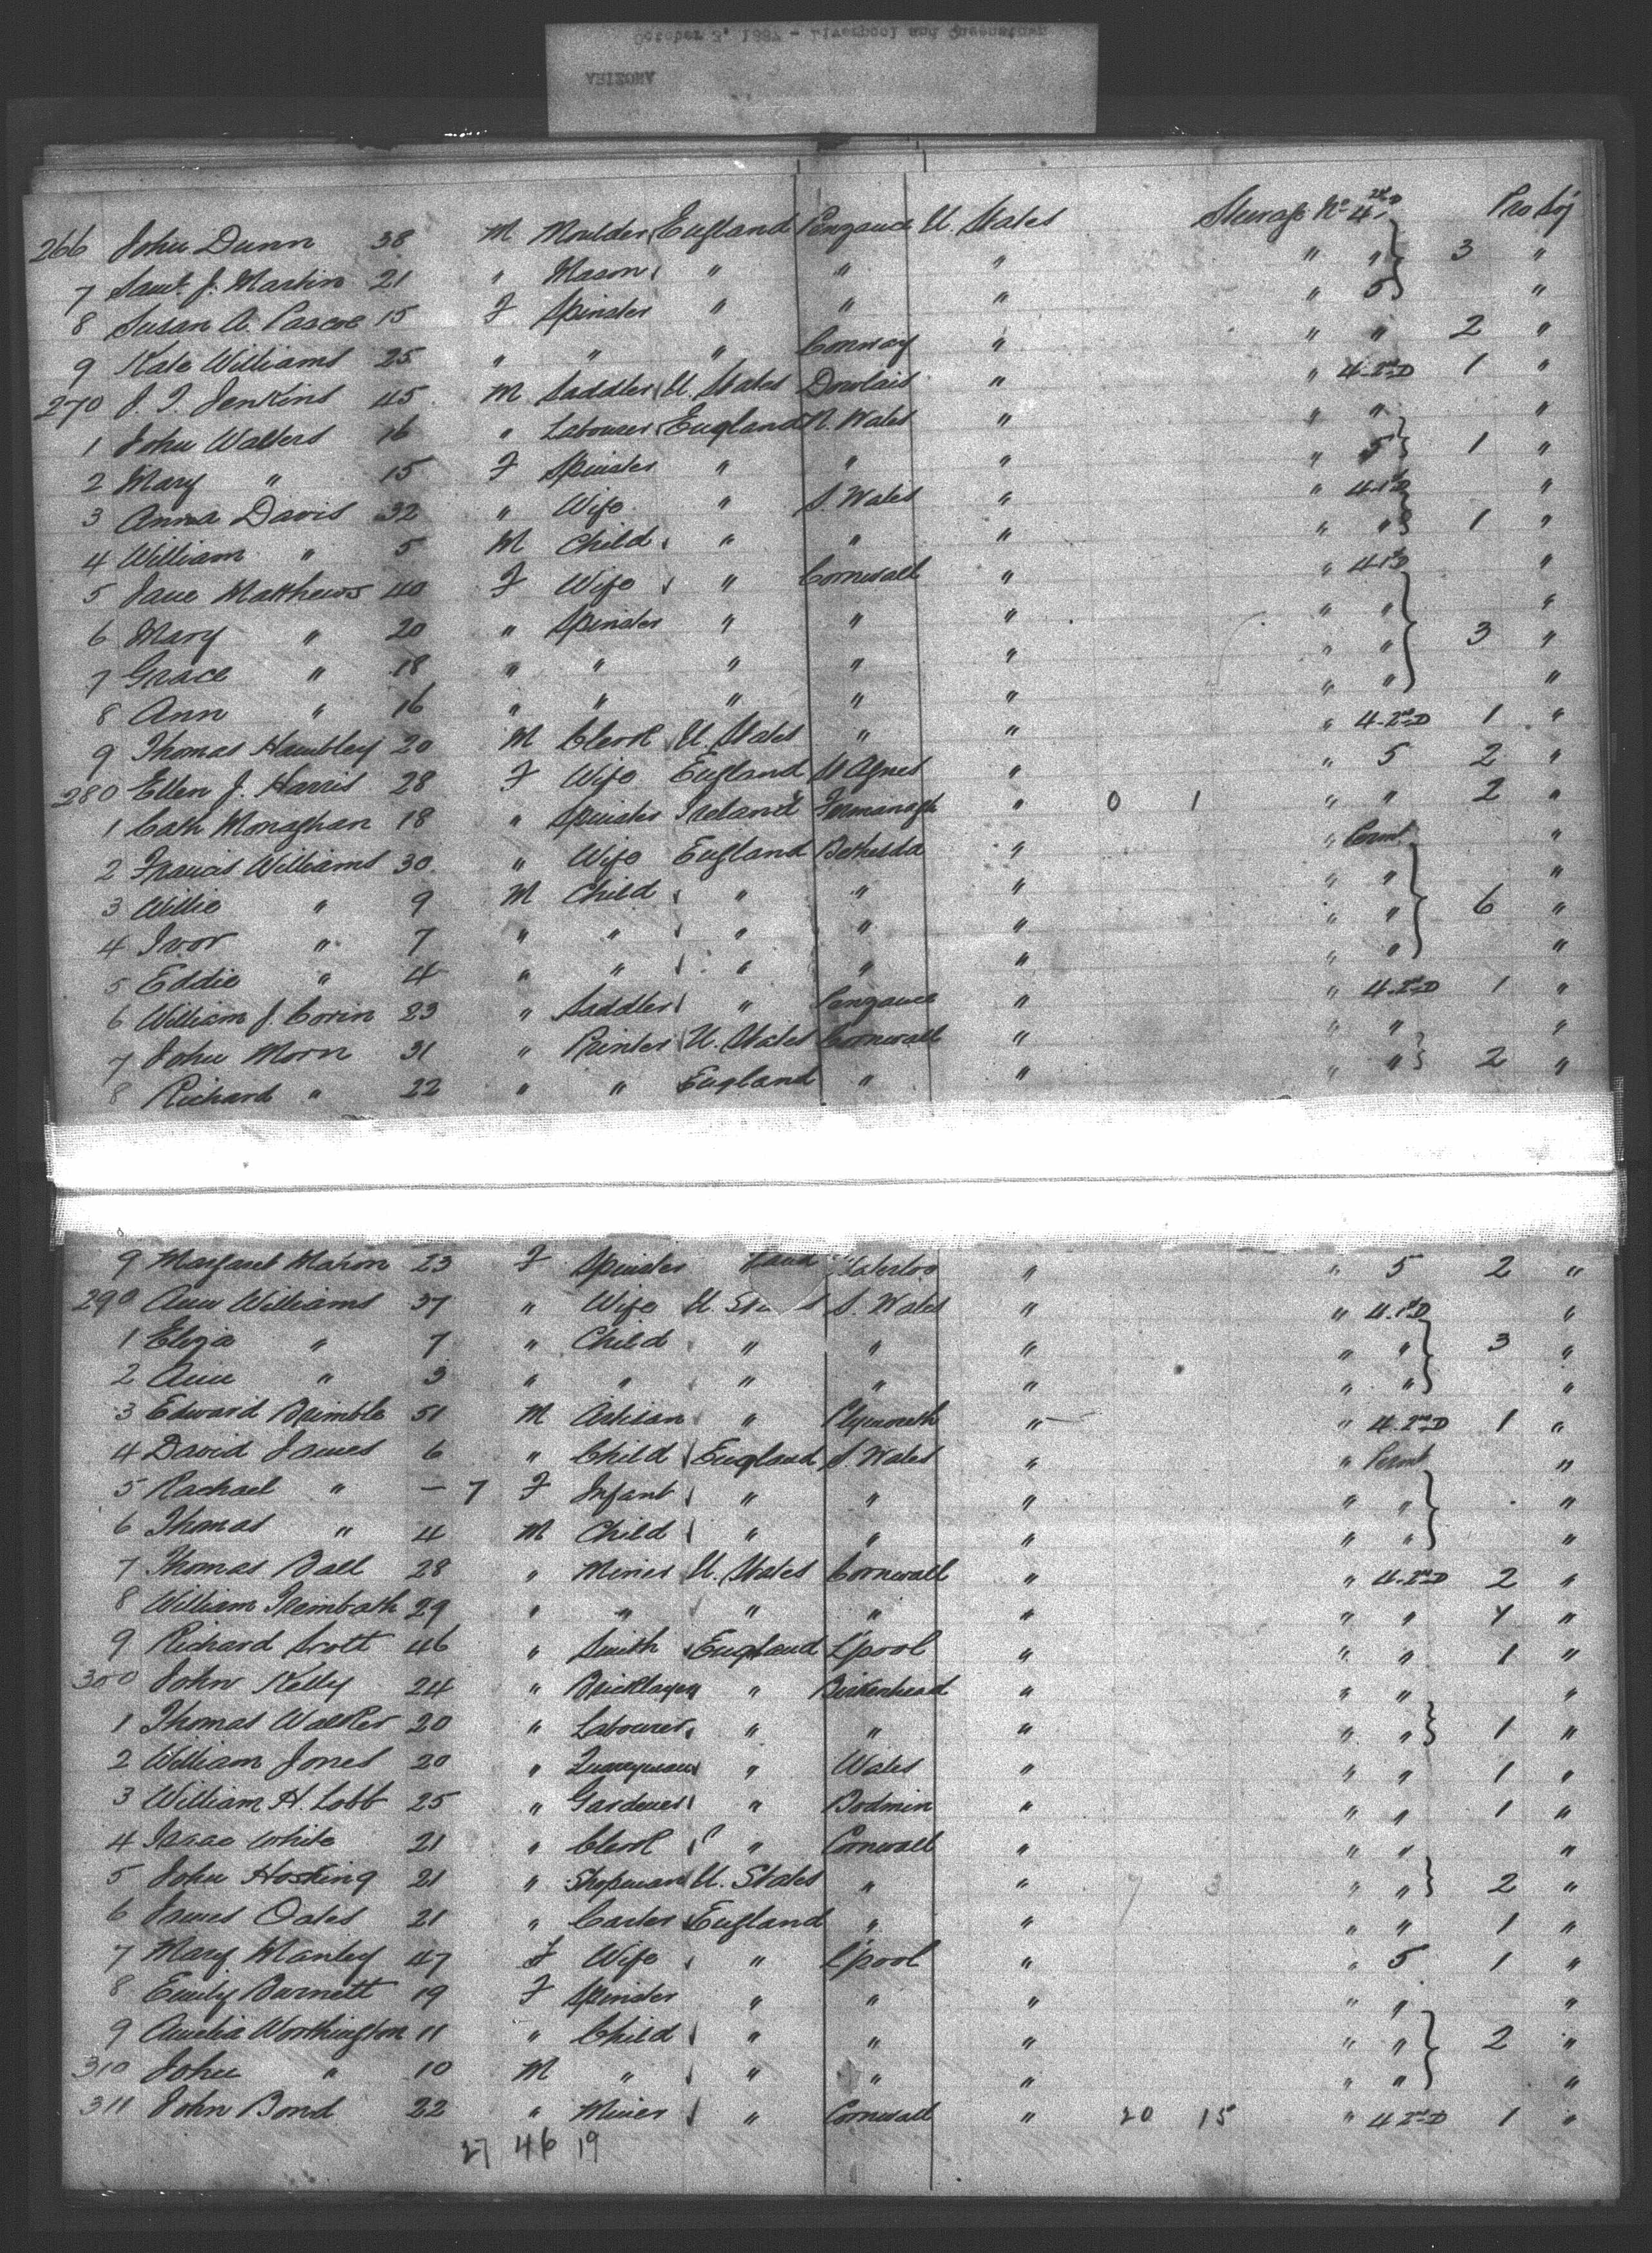 October 3, 1887 - Liverpool and Queenstown
ARIZONA
266 John Dunn 38 M Moulder England Penzance U. States Steerage No 4 2nd D Pro Soj
7 Saml. J. Martin 21 " Mason " " " " " 3 "
8 Susan A. Pascoe 15 F Spinster " " " " 5 "
9 Kate Williams 25 " " " Conway " " " 2 "
270 J. J. Jenkins 45 M Saddler U. States Dowlais " " 4-2nd D 1 "
1 John Walters 16 " Labourer England N. Wales " " " "
2 Mary " 15 F Spinster " " " " 5 1 "
3 Anna Davis 32 " Wife " S. Wales " " 4-1st D "
4 William " 5 M Child " " " " " 1 "
5 Jane Matthews 40 F Wife " Cornwall " " 4-1st D "
6 Mary " 20 " Spinster " " " " " "
7 Grace " 18 " " " " " " " 3 "
8 Ann " 16 " " " " " " " "
9 Thomas Hambley 20 M Clerk U. States " " " 4-2nd D 1 "
280 Ellen J. Harris 28 F Wife England St Agnes " " 5 2 "
1 Cath Monaghan 18 " Spinster Ireland Fermanagh " 0 1 " " 2 "
2 Francis Williams 30 " Wife England Bethesda " " Permt "
3 Willie " 9 M Child " " " " " "
4 Ivor " 7 " " " " " " " 6 "
5 Eddie " 4 " " " " " " " "
6 William J. Corin 23 " Saddler " Penzance " " 4-2nd D 1 "
7 John Morn 31 " Printer U. States Cornwall " " " "
8 Richard " 22 " " England " " " " 2 "
9 Margaret Mahon 23 F Spinster land Waterloo " " 5 2 "
290 Ann Williams 37 " Wife U. Sta s S. Wales " " 4-1st D "
1 Eliza " 7 " Child " " " " " 3 "
2 Ann " 3 " " " " " " " "
3 Edward Brimble 51 M Artisan " Plymouth " " 4-2nd D 1 "
4 David James 6 " Child England S. Wales " " Permt "
5 Rachael " - 7 F Infant " " " " " "
6 Thomas " 4 M Child " " " " " "
7 Thomas Ball 28 " Miner U. States Cornwall " " 4-2nd D 2 "
8 William Trembath 29 " " " " " " " 4 "
9 Richard Scott 46 " Smith England L'pool " " " 1 "
300 John Kelly 24 " Bricklayer " Birkenhead " " " "
1 Thomas Walker 20 " Labourer " " " " " 1 "
2 William Jones 20 " Quarryman " Wales " " " 1 "
3 William H. Lobb 25 " Gardener " Bodmin " " " 1 "
4 Isaac White 21 " Clerk " Cornwall " " " "
5 John Hosking 21 " Shopman U. States " " 7 3 " " 2 "
6 James Oates 21 " Carter England " " " " 1 "
7 Mary Manley 47 F Wife " L'pool " " 5 1 "
8 Emily Burnett 19 F Spinster " " " " " "
9 Amelia Worthington 11 " Child " " " " " 2 "
310 John " 10 M " " " " " " "
311 John Bond 22 " Miner " Cornwall " 20 15 " 4 2nd D 1 "
27 46 19